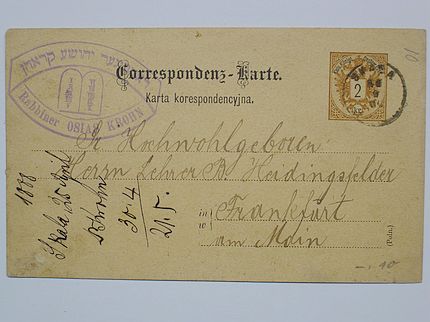 יהושע קראהן
Rabbiner OSIAS KROHN
Correspondenz-Karte.
Karta korespondencyjna.
2
SKAŁA
Sr Hochwohlgeboren
Herrn Lehrer B. Heidingsfelder
in
w
Frankfurt
am Main
(Poln.)
1888
Skala 25 April
Krohn
30.4
21.5.
10